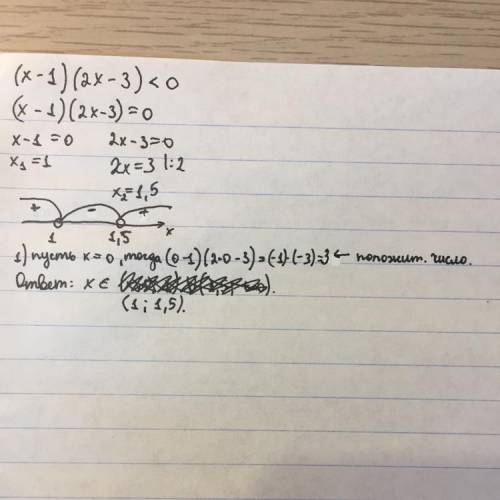 (x-1)(2x-3)<0
(x-1)(2x-3)=0
x-1=0 2x-3=0
x₁=1 2x=3 |:2
x₂=1,5
+ - +
1 1,5 x
1) пусть x=0, тогда (0-1)(2·0-3)=(-1)·(-3)=3 ← положит. число.
Ответ: x ∈
(1; 1,5).